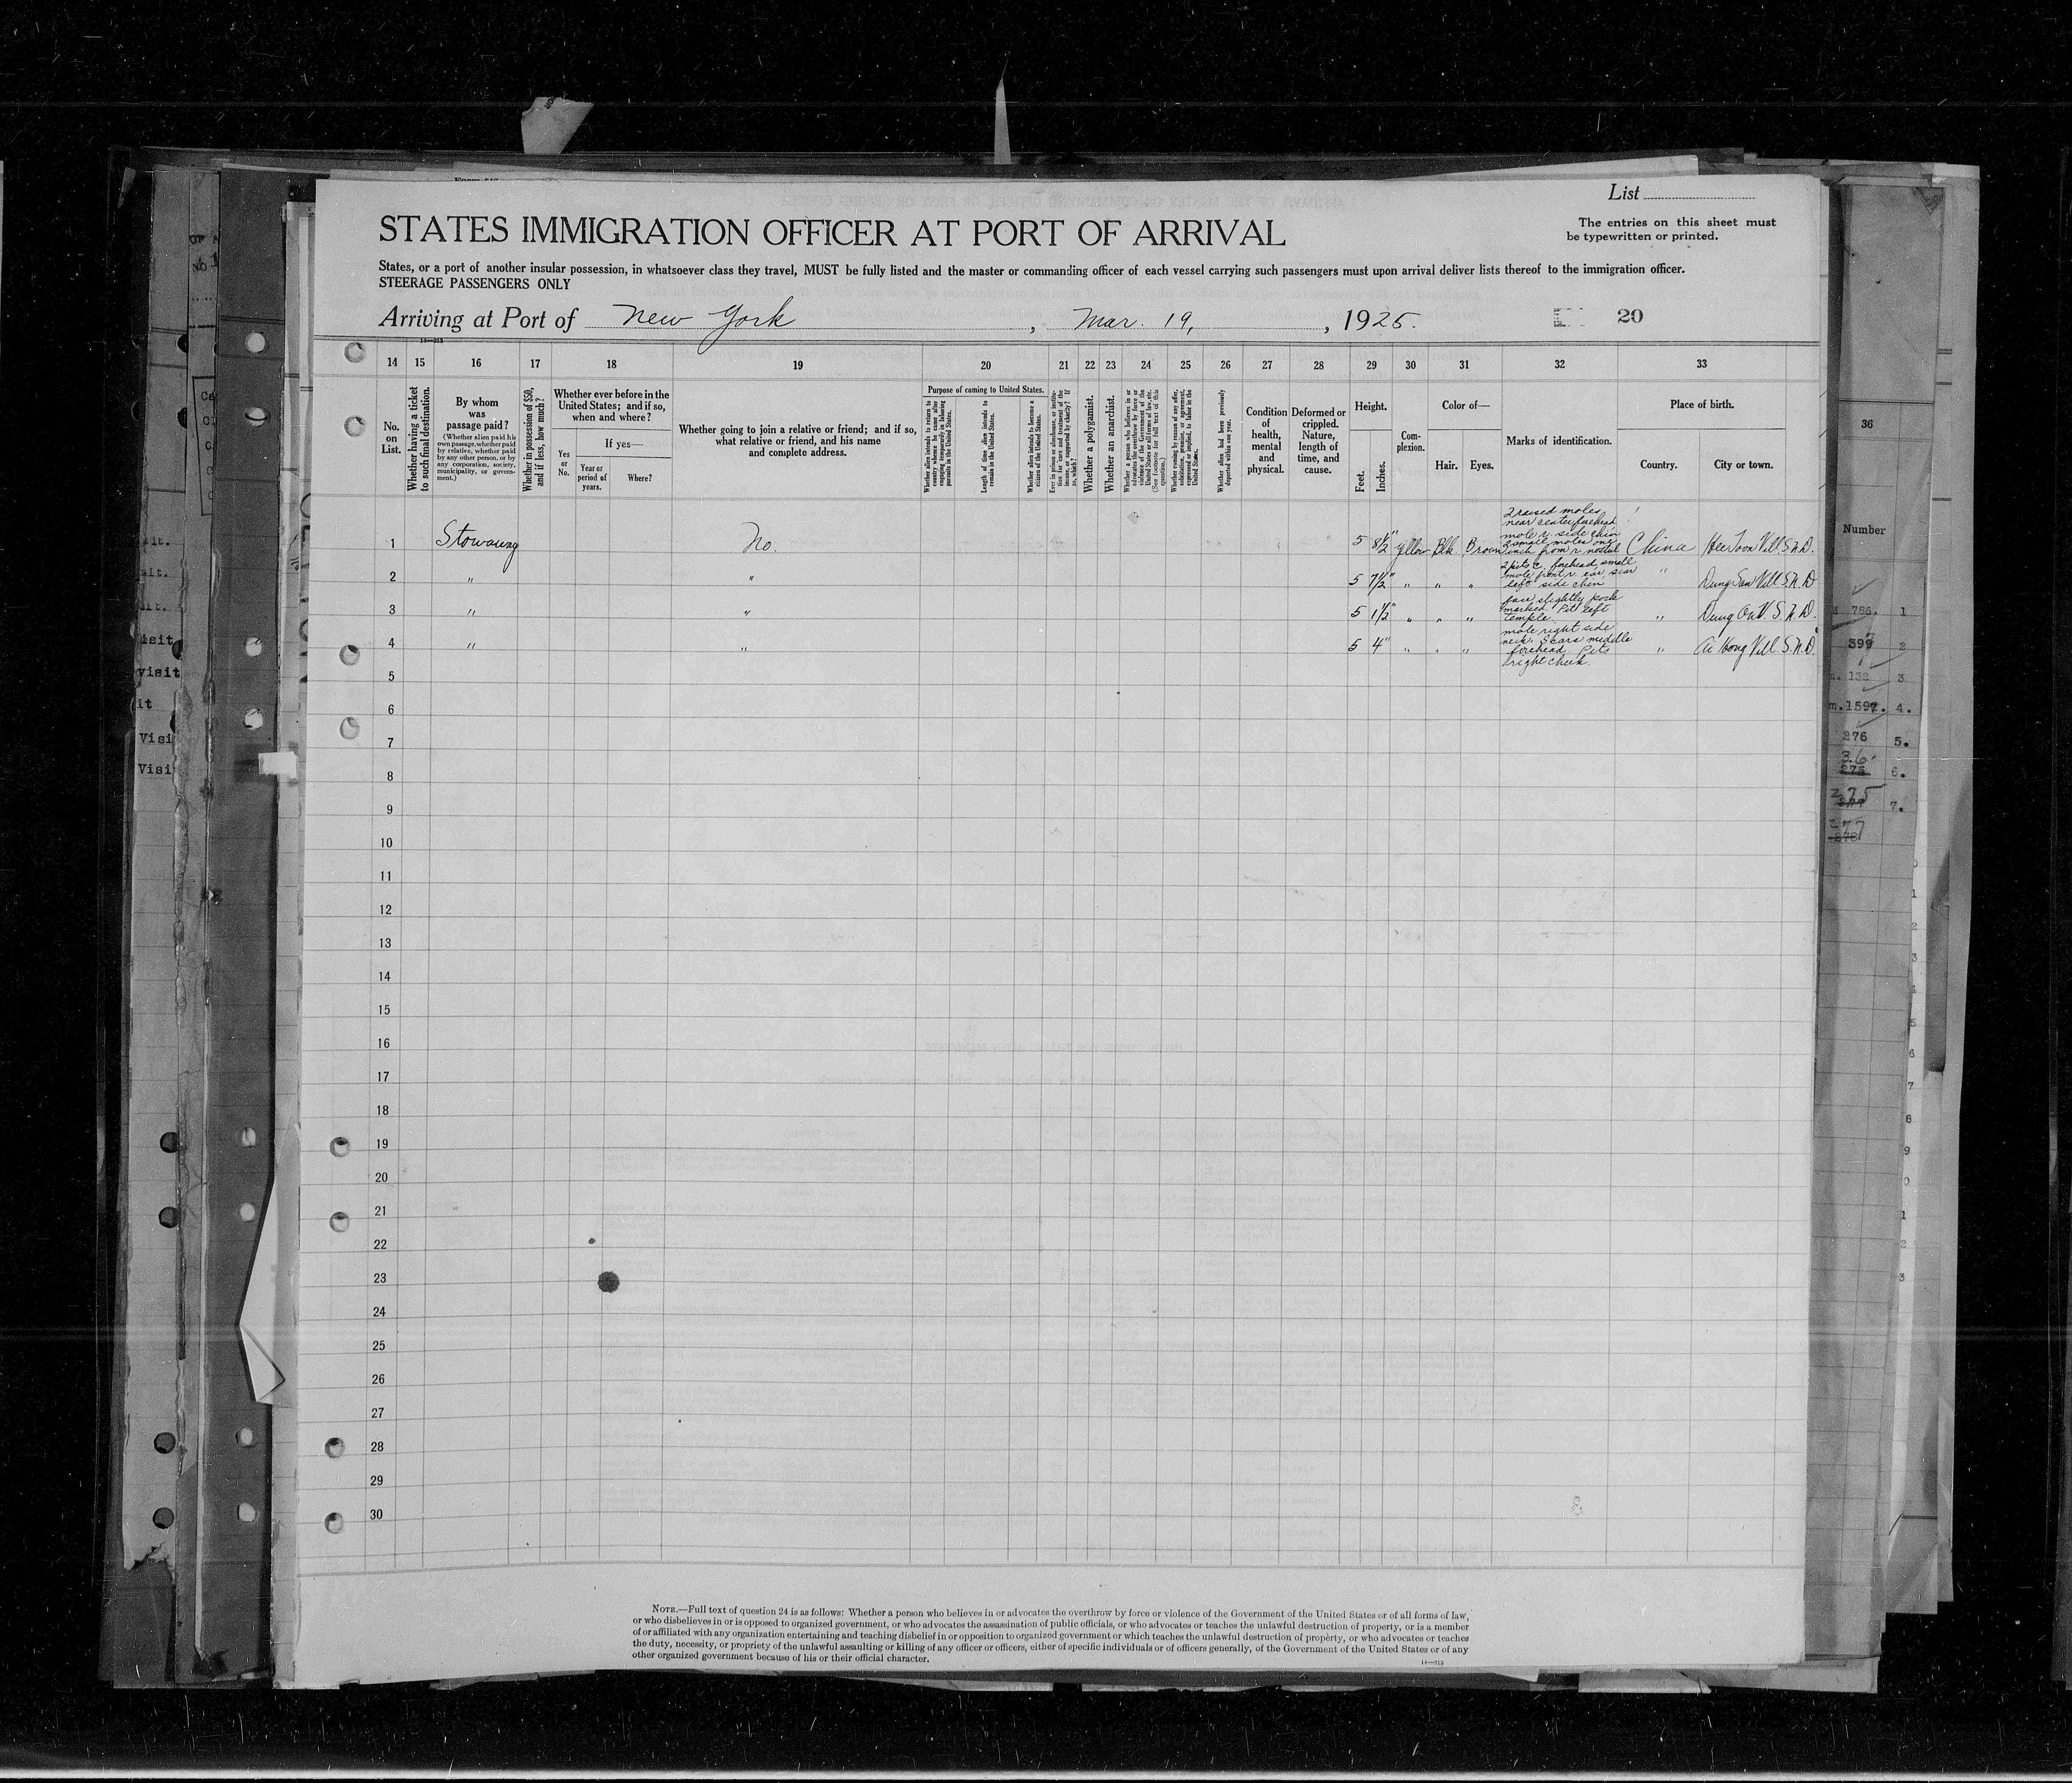 List
The entries on this sheet must
be typewritten or printed.
STATES IMMIGRATION OFFICER AT PORT OF ARRIVAL
States, or a port of another insular possession, in whatsoever class they travel, MUST be fully listed and the master or commanding officer of each vessel carrying such passengers must upon arrival deliver lists thereof to the immigration officer.
STEERAGE PASSENGERS ONLY
Arriving at Port of New York, Mar. 19, 1925. 20
14 15 16 17 18 19 20 21 22 23 24 25 26 27 28 29 30 31 32 33
No. on List.
Whether having a ticket to such final destination.
By whom was passage paid?
(Whether alien paid his own passage, whether paid by relative, whether paid by any other person, or by any corporation, society, municipality, or government.)
Whether in possession of $50, and if less, how much?
Whether ever before in the United States; and if so, when and where?
If yes—
Yes or No.
Year or period of years.
Where?
Whether going to join a relative or friend; and if so, what relative or friend, and his name and complete address.
Purpose of coming to United States.
Whether alien intends to return to country whence he came after engaging temporarily in laboring pursuits in the United States.
Length of time alien intends to remain in the United States.
Whether alien intends to become a citizen of the United States.
Whether a polygamist.
Whether an anarchist.
Whether alien had been previously deported within one year.
Condition of health, mental and physical.
Deformed or crippled. Nature, length of time, and cause.
Height.
Feet. Inches.
Complexion.
Color of—
Hair. Eyes.
Marks of identification.
Place of birth.
Country. City or town.
1 Stowaway No. 5 8½" Yellow Blk. Brown 2 raised moles near center forehead mole r. side chin 2 small moles one inch from r. nostril China Hee Toon Vill. S.N.D.
2 " " 5 7½" " " " 2 pits c. forehead, small mole front r. ear scar left side chin " Dung San Vill S.N.D
3 " " 5 1½" " " " face slightly pock marked. Pit left temple. " Dung On V. S.N.D.
4 " " 5 4" " " " mole right side neck. Scars middle forehead. Pits right cheek. " Ai Hong Vill. S.N.D.
5
6
7
8
9
10
11
12
13
14
15
16
17
18
19
20
21
22
23
24
25
26
27
28
29
30
NOTE.—Full text of question 24 is as follows: Whether a person who believes in or advocates the overthrow by force or violence of the Government of the United States or of all forms of law,
or who disbelieves in or is opposed to organized government, or who advocates the assassination of public officials, or who advocates or teaches the unlawful destruction of property, or is a member
of or affiliated with any organization entertaining and teaching disbelief in or opposition to organized government or which teaches the unlawful destruction of property, or who advocates or teaches
the duty, necessity, or propriety of the unlawful assaulting or killing of any officer or officers, either of specific individuals or of officers generally, of the Government of the United States or of any
other organized government because of his or their official character.
14—213
36
Number
786. 1
399 2
132 3
1597. 4.
276 5.
6.
275 7.
277